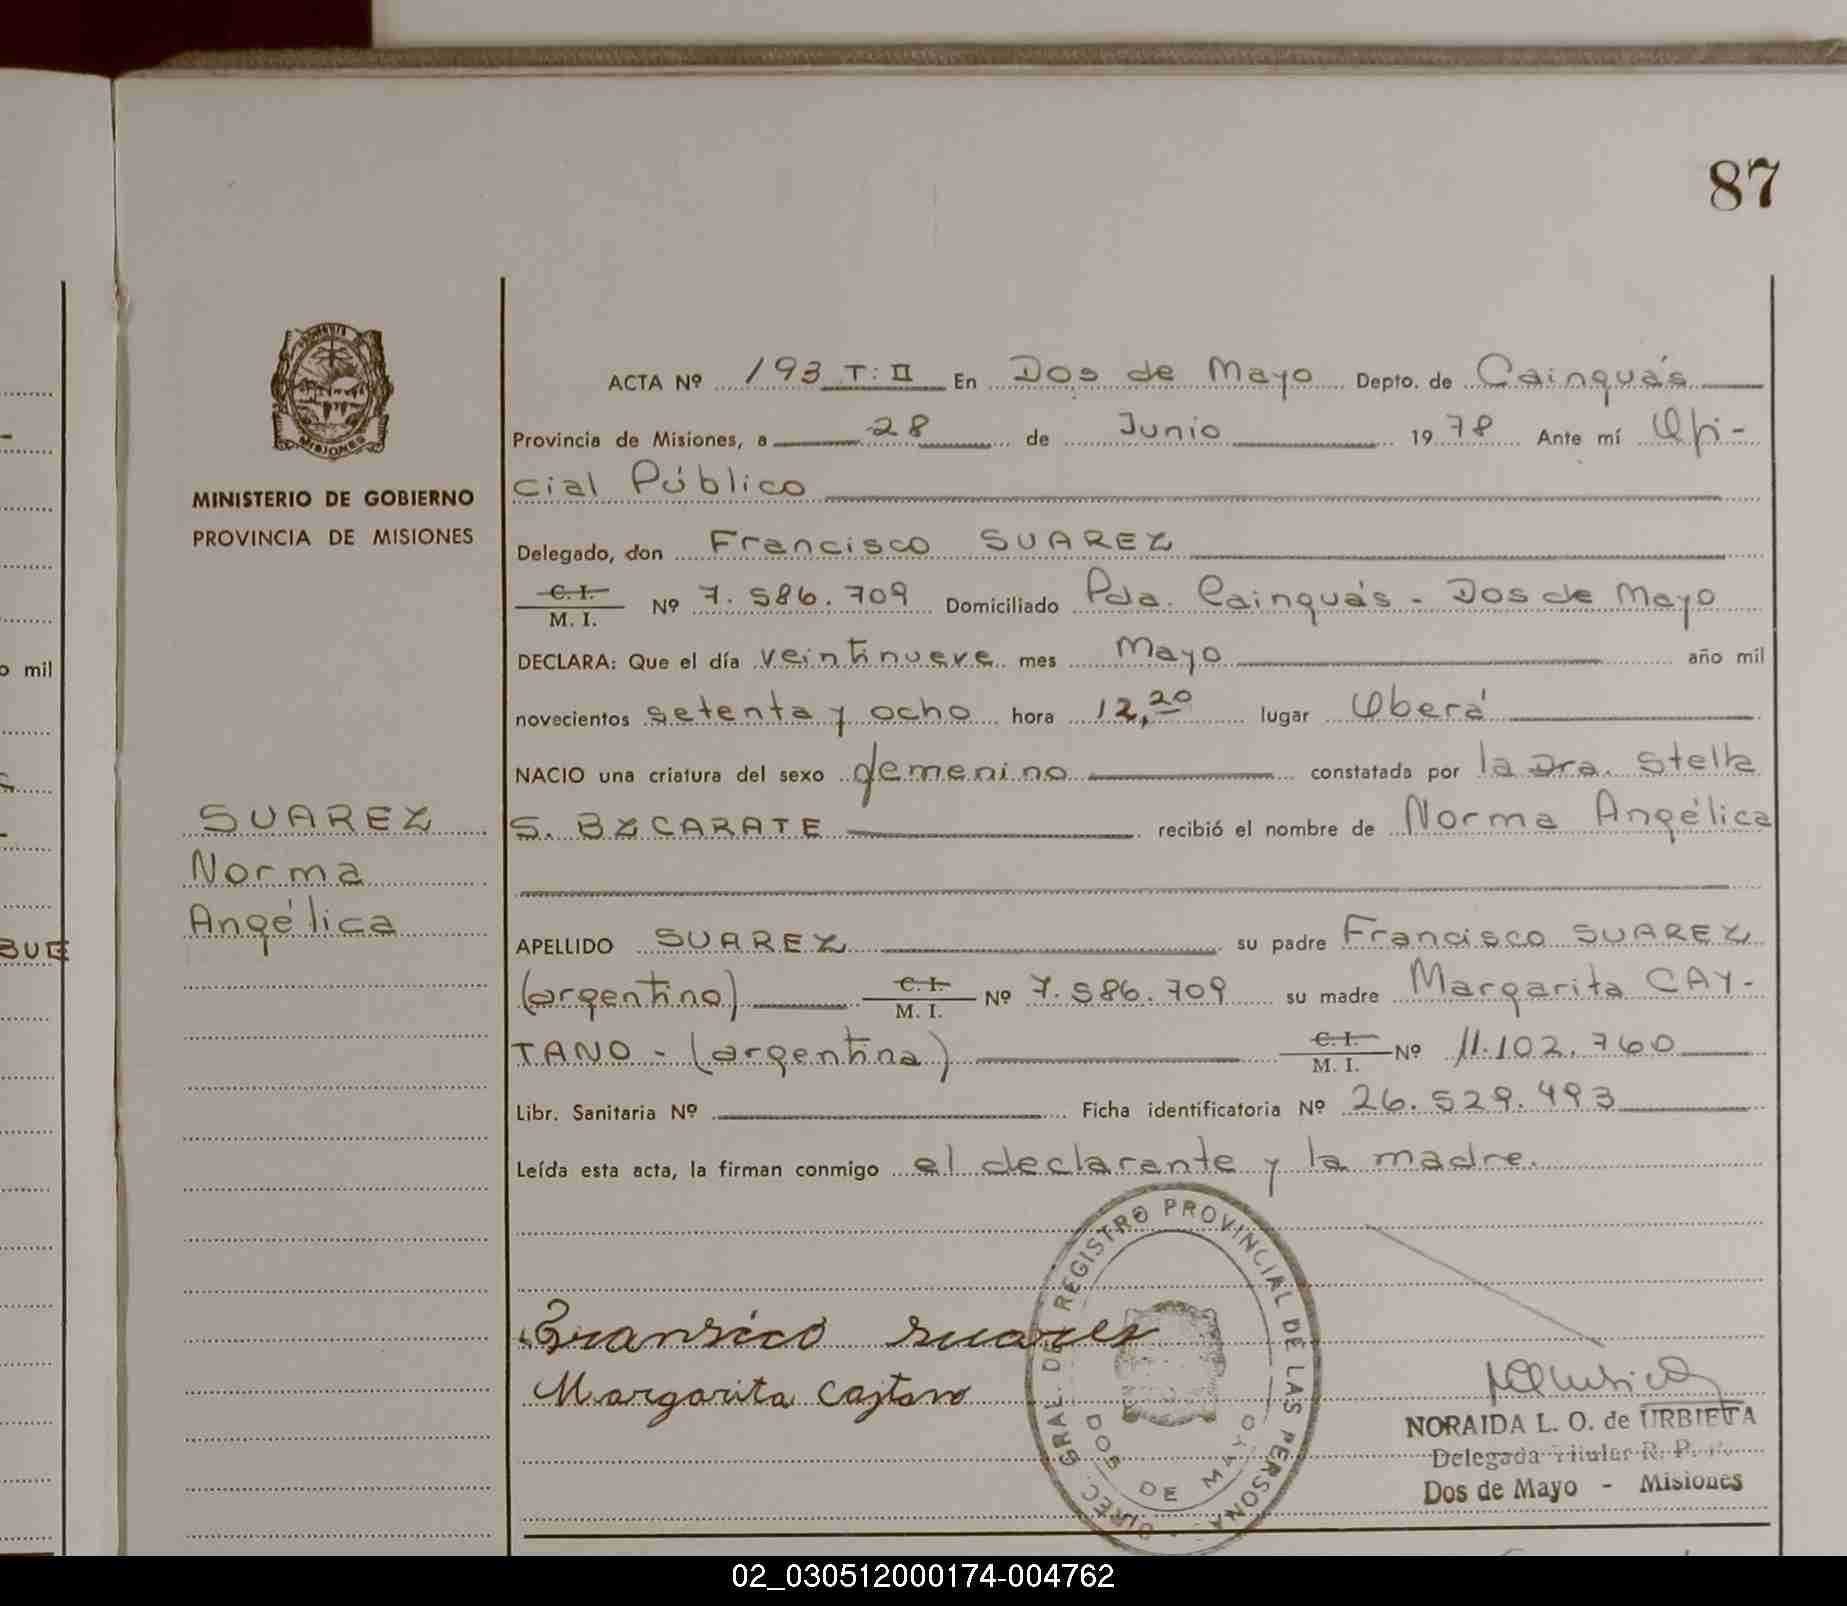 87
PROVINCIA
MISIONES
MINISTERIO DE GOBIERNO
PROVINCIA DE MISIONES
SUAREZ
Norma
Angélica
o mil
BUE
ACTA Nº 193 T: II En Dos de Mayo Depto. de Cainguás
Provincia de Misiones, a 28 de Junio 1978 Ante mí Ofi-
cial Público
Delegado, don Francisco SUAREZ
C. I.
M. I. Nº 7.586.709 Domiciliado Pda. Cainguás - Dos de Mayo
DECLARA: Que el día veintinueve mes Mayo año mil
novecientos setenta y ocho hora 12,20 lugar Oberá
NACIO una criatura del sexo femenino constatada por la Dra. Stella
S. BZCARATE recibió el nombre de Norma Angélica
APELLIDO SUAREZ su padre Francisco SUAREZ
(argentino) C. I. M. I. Nº 7.586.709 su madre Margarita CAY-
TANO - (argentina) C. I. M. I. Nº 11.102.760
Libr. Sanitaria Nº Ficha identificatoria Nº 26.529.493
Leída esta acta, la firman conmigo el declarante y la madre.
Fransico suares
Margarita Caytano
DIREC. GRAL. DE REGISTRO PROVINCIAL DE LAS PERSONAS
DOS DE MAYO
NORAIDA L. O. de URBIETA
Delegada Titular R. P. P.
Dos de Mayo - Misiones
02_030512000174-004762